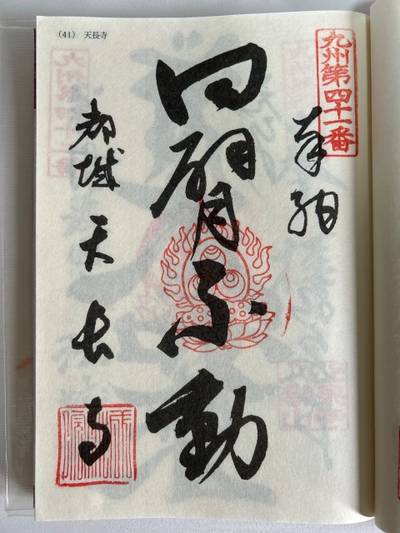 (41) 天長寺
九州第四十一番
奉納
四臂不動
都城 天長寺